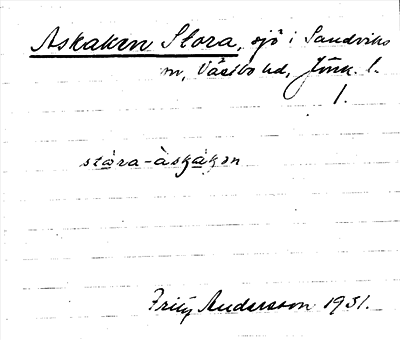 Askaken Stora, sjö i Sandviks
sn, Västbo hd, Jönk. l.
1.
stóra-àskàkən
Fritz Andersson 1931.